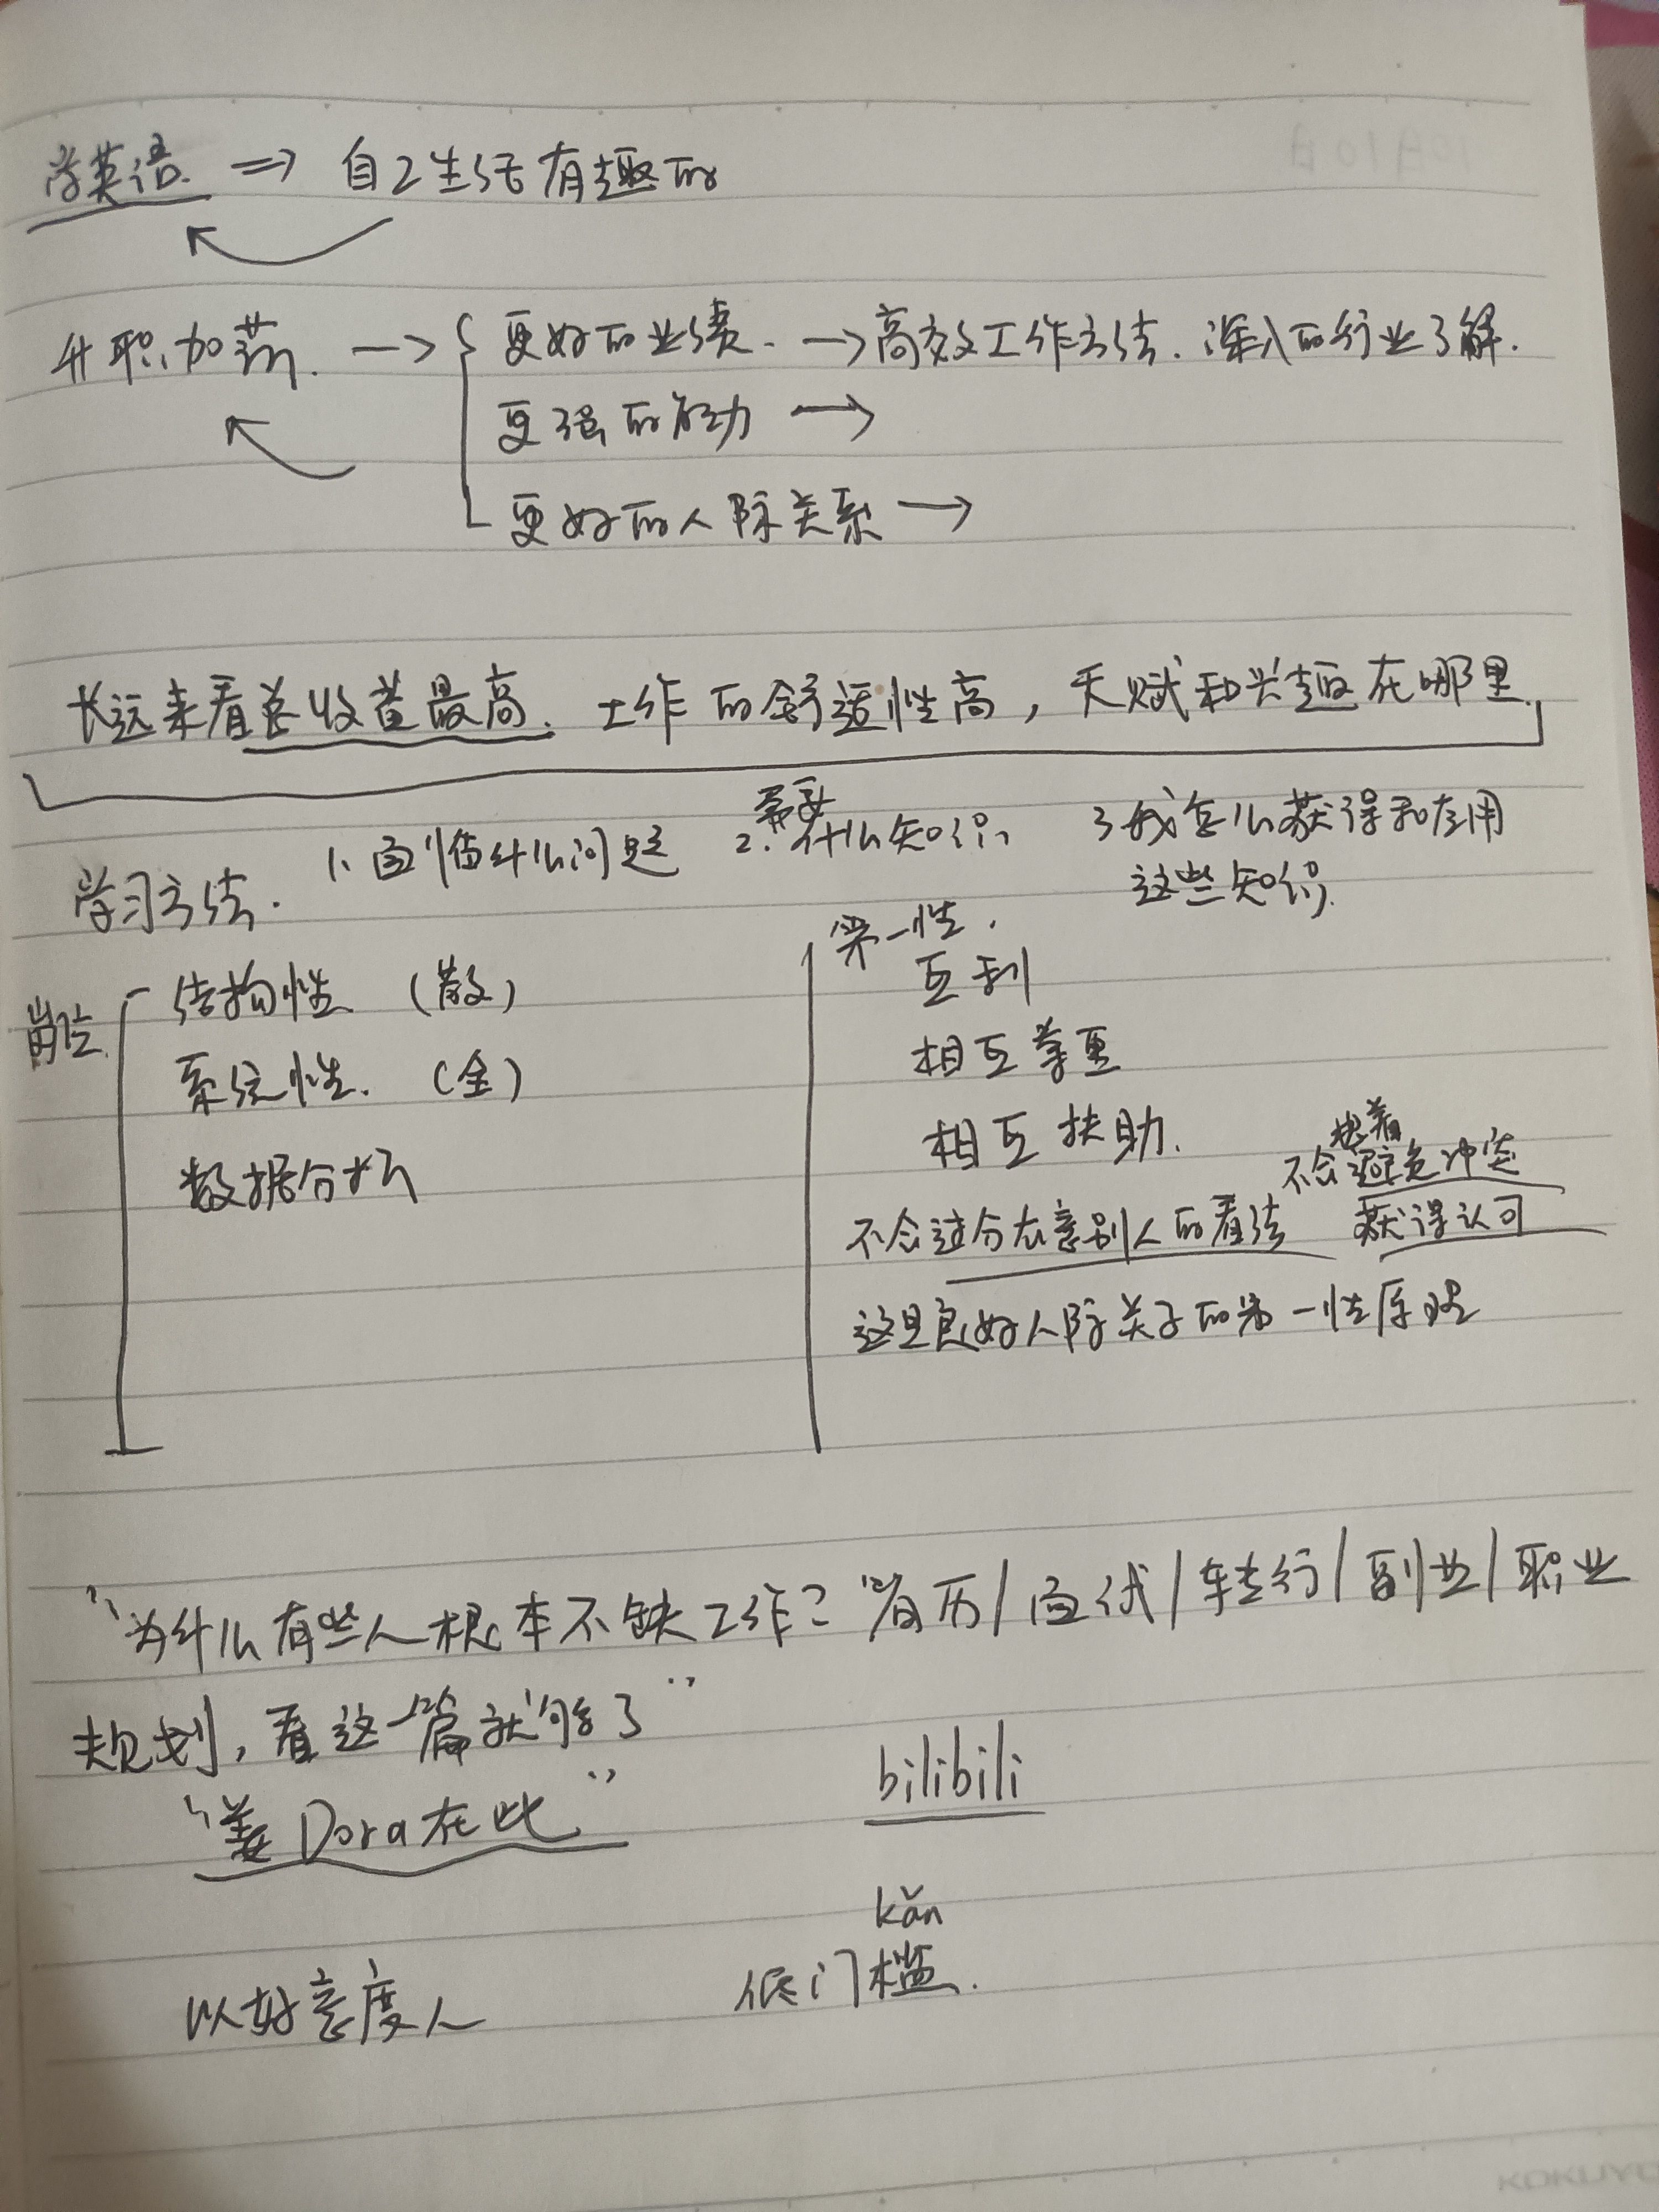 学英语. ⇒ 自己生活有趣的
升职加薪. → { 更好的业绩. → 高效工作方法. 深入的行业了解.
更强的能力 →
更好的人际关系 →
长远来看总收益最高. 工作的舒适性高, 天赋和兴趣在哪里.
学习方法. 1. 面临什么问题 2. 需要什么知识, 3 我怎么获得和应用
这些知识.
岗位.
结构性 (散)
系统性. (全)
数据分析
第一性.
互利
相互尊重
相互扶助.
执着
不会避免冲突
不会过分在意别人的看法 获得认可
这是良好人际关系的第一性原理
“为什么有些人根本不缺工作? 简历/面试/转行/副业/职业
规划, 看这一篇就够了”
“姜Dora在此” bilibili
kǎn
以好意度人 低门槛.
KOKUYO